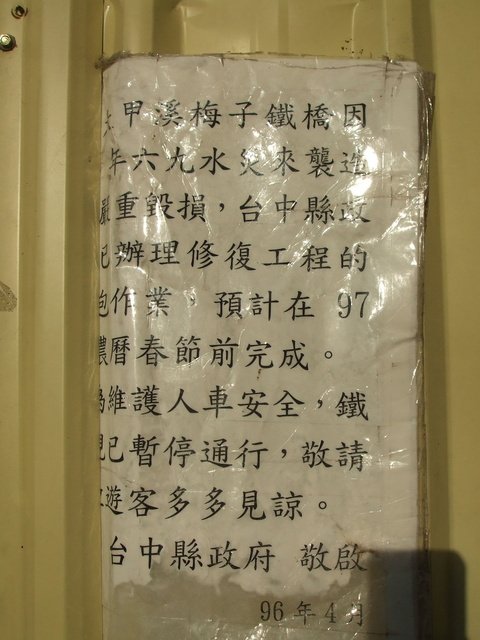 大甲溪梅子鐵橋因
年六九水災來襲造
嚴重毀損，台中縣政
已辦理修復工程的
包作業，預計在 97
農曆春節前完成。
為維護人車安全，鐵
現已暫停通行，敬請
遊客多多見諒。
台中縣政府 敬啟
96 年 4 月